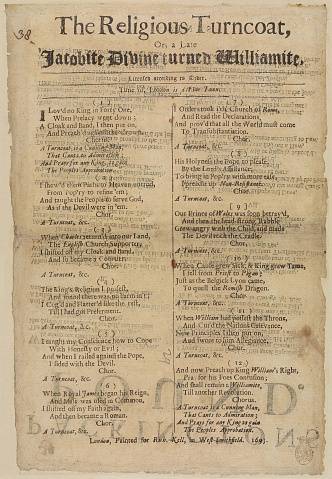 38
The Religious Turncoat,
Or, a Late
Jacobite Divine turned Williamite.
Licensed according to Order.
Tune of, London is a Fine Town.
( 1. )
I Lov'd no King in Forty One,
When Prelacy went down:
A Cloak and Band, I then put on,
And Preach'd against the Crown.
Chor.
A Turncoat, is a Cunning Man,
That Cants to Admiration;
And Prays for any King to gain
The Peoples Approbation.
( 2. )
I shew'd them Paths to Heaven untrod,
From Popery to refine 'em;
And taught the People to serve God,
As if the Devil were in 'em.
Chor.
A Turncoat, &c.
( 3. )
When Charles return'd into our Land,
The English Church Supporters,
I shifted off my Cloak and Band,
And so became a Courtier.
Chor.
A Turncoat, &c.
( 4. )
The King's Religion I profest,
And found there was no harm in't;
I Cogg'd and Flatter'd like the rest,
Till I had got Preferment.
Chor.
A Turncoat, &c.
( 5. )
I taught my Conscience how to Cope
With Honesty or Evil;
And when I railed against the Pope,
I sided with the Devil.
Chor.
A Turncoat, &c.
( 6. )
When Royal James began his Reign,
And Mass was used in Common,
I shifted off my Faith again,
And then became a Roman.
Chor.
A Turncoat, &c.
( 7. )
Orders I took in the Church of Rome,
And Read the Declarations,
And prov'd that all the World must come
To Transubstantiation.
Chor.
A Turncoat, &c.
( 8. )
His Holyness the Pope, to please,
By the Lord's Assistance,
To bring in Popery with more ease,
Preach'd up Non-Resistance.
Chor.
A Turncoat, &c.
( 9. )
Our Prince of Wales was soon betray'd,
And then the Lord strong Rabble
Grew angry with the Child, and made
The Devil rock the Cradle.
Chor.
A Turncoat, &c.
( 10. )
When Cause grew Sick, & King grew Tame,
I fell from Priest to Pigeon;
Just as the Belgick Lyon came,
To quell the Romish Dragon.
Chorus.
A Turncoat, &c.
( 11. )
When William had possest the Throne,
And Cur'd the Nations Grievance,
New Principles I then put on,
And Swore to him Allegiance.
Chor.
A Turncoat, &c.
( 12. )
And now Preach up King William's Right,
Pray for his Foes Confusion;
And shall remain a Williamite,
Till another Revolution.
Chorus.
A Turncoat is a Cunning Man,
That Cants to Admiration;
And Prays for any King to gain
The Peoples Approbation.
London, Printed for Rich. Kell, in West-Smithfield. 1693.